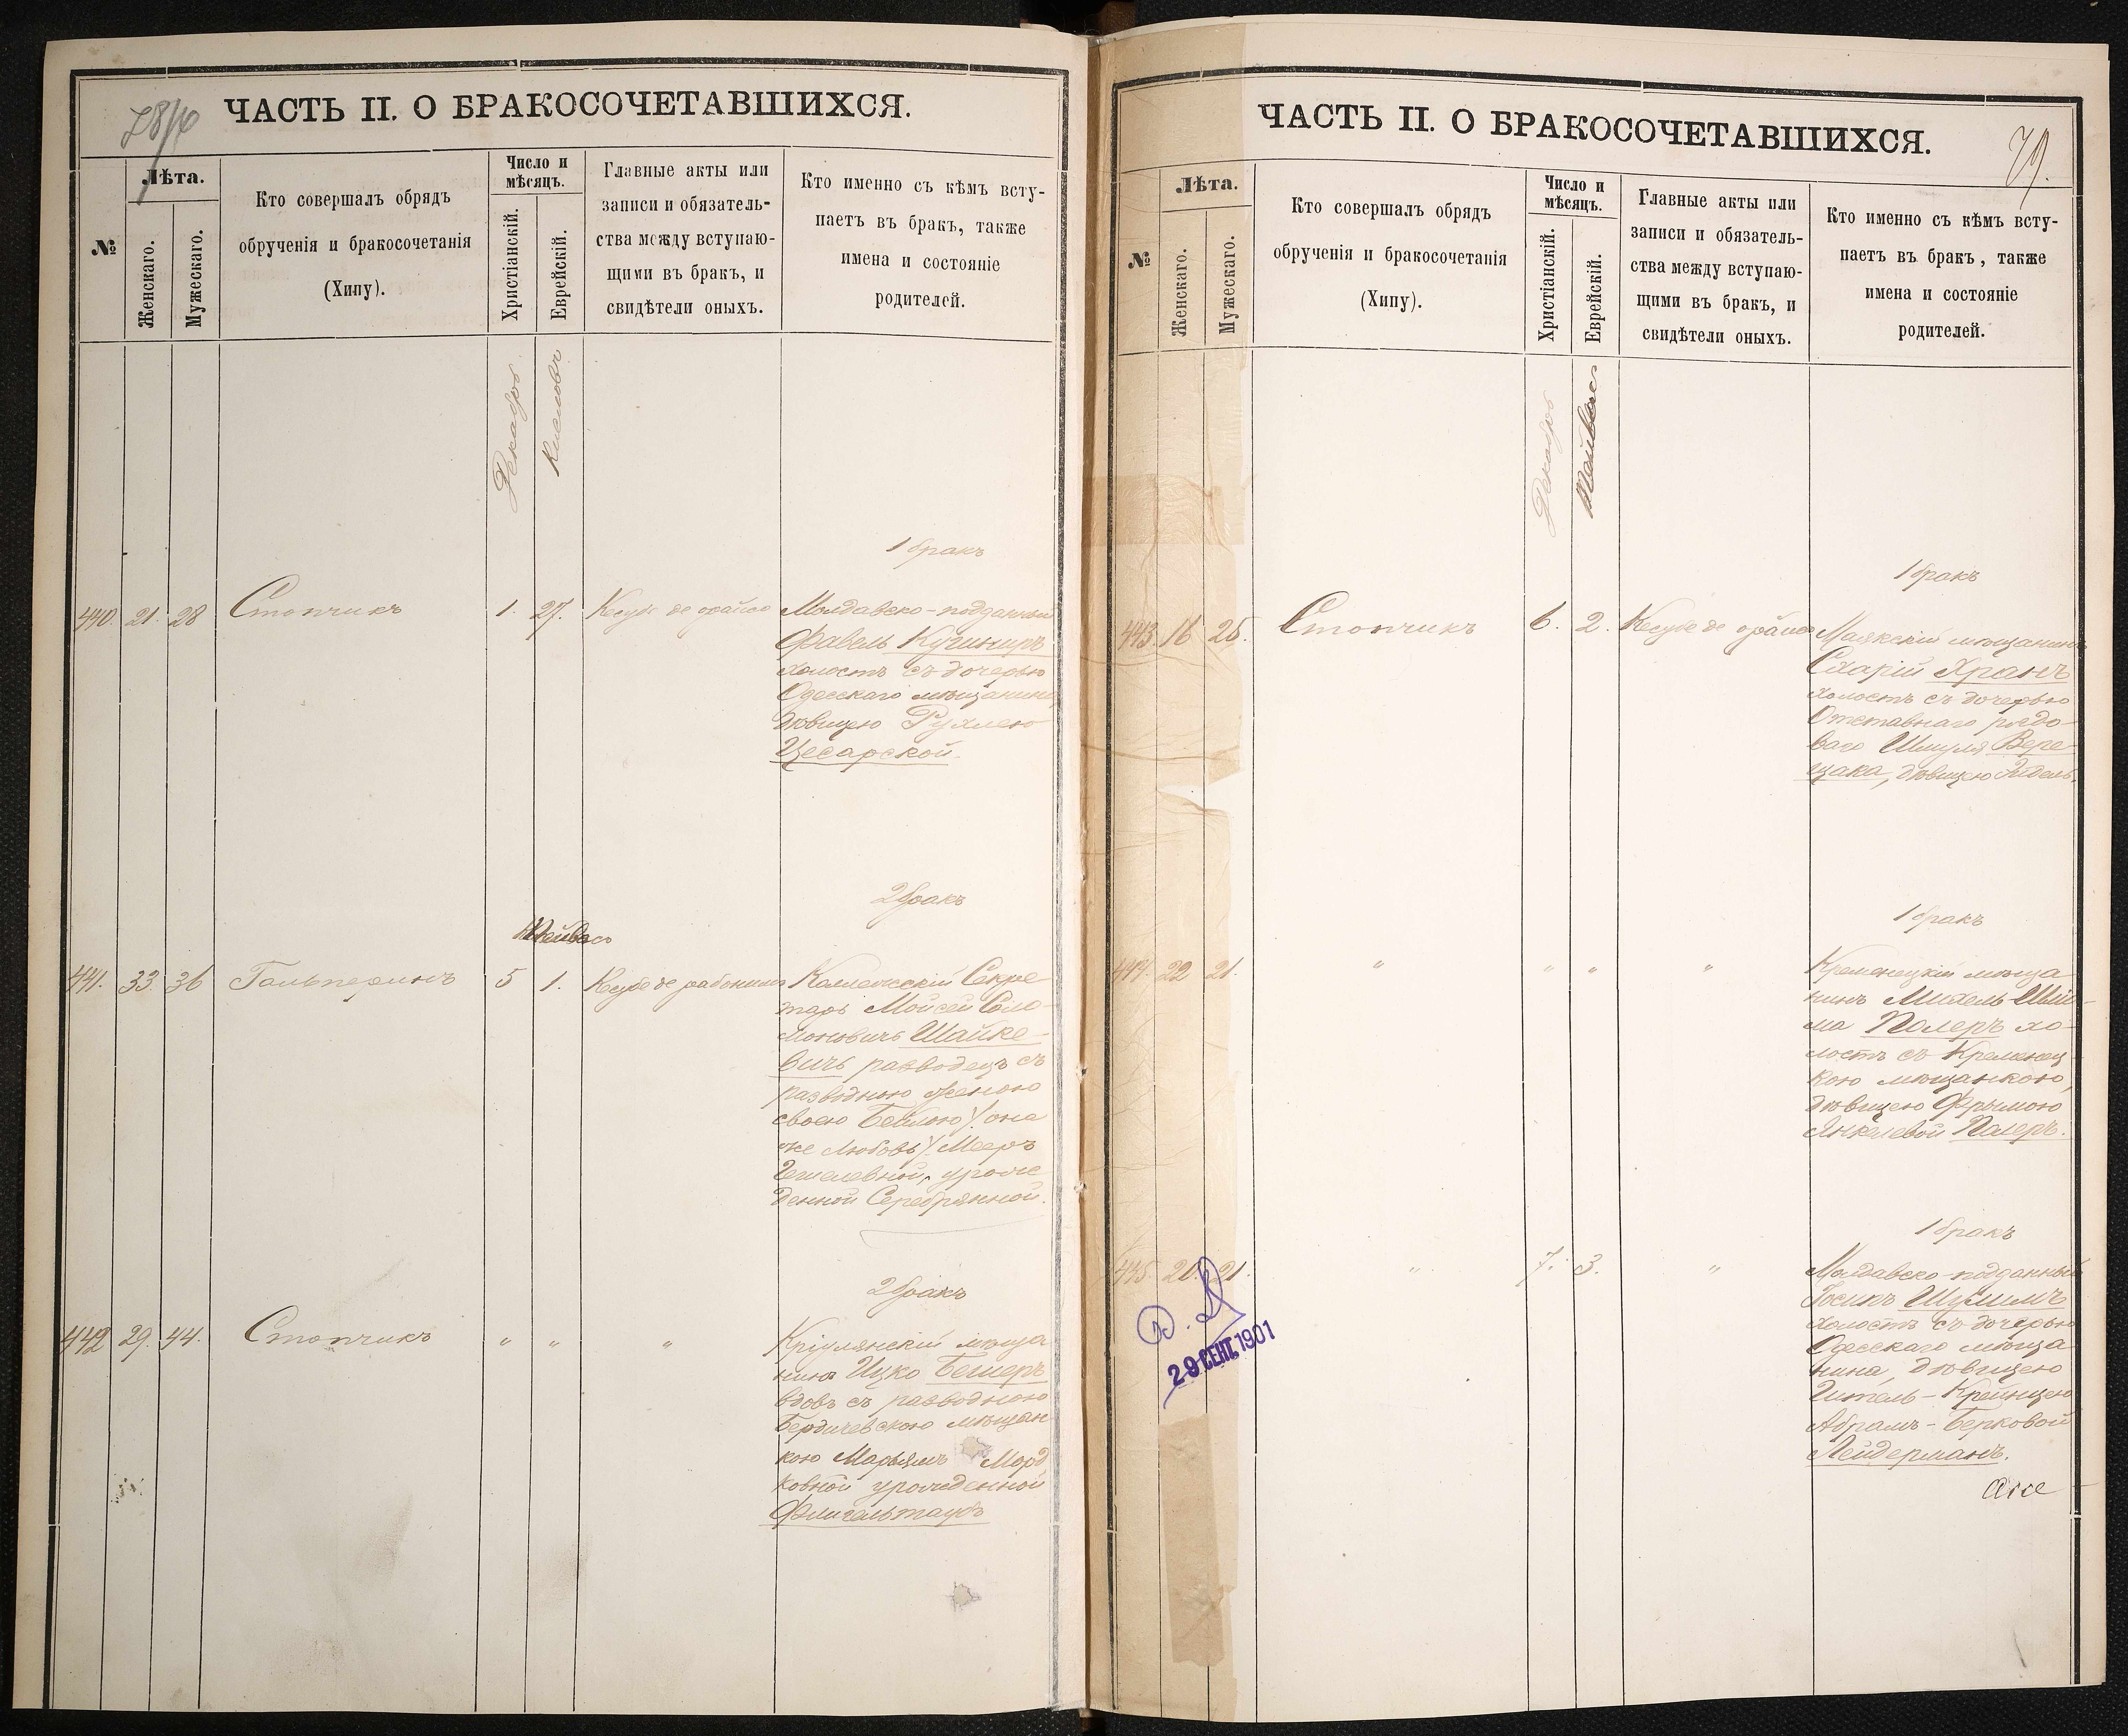 78/40
ЧАСТЬ II. О БРАКОСОЧЕТАВШИХСЯ.
№
Лѣта.
Женскаго.
Мужескаго.
Кто совершалъ обрядъ
обрученія и бракосочетанія
(Хипу).
Число и
мѣсяцъ.
Христіанскій.
Еврейскій.
Главные акты или
записи и обязатель-
ства между вступаю-
щими въ бракъ, и
свидѣтели оныхъ.
Кто именно съ кѣмъ всту-
паетъ въ бракъ, также
имена и состояніе
родителей.
Декабрь
Кислевъ
1 бракъ
440. 21. 28 Стопчикъ 1. 27. Кесубе де орайсо Молдавско-подданный
Фавель Кушниръ
холостъ съ дочерью
Одесскаго мѣщанина,
дѣвицею Рухлею
Цесарской.
2 бракъ
Тейвасъ
441. 33. 36 Гальперинъ 5 1. Кесубе де рабонимъ Коллежскій Секре-
тарь Мойсей Соло-
моновичъ Шайке-
вичъ разводецъ съ
разводною женою
своею Бейлою /: она
же Любовь :/ Мееръ
Гешелевной, урож-
денной Серебрянной.
2 бракъ
442 29. 44. Стопчикъ " " " Кріулянскій мѣща
нинъ Ицко Бешеръ
вдовъ съ разводною
Бердичевскою мѣщан-
кою Марьямъ Морд
ковной урожденной
Флигельтаубъ
ЧАСТЬ II. О БРАКОСОЧЕТАВШИХСЯ.
79.
№
Лѣта.
Женскаго.
Мужескаго.
Кто совершалъ обрядъ
обрученія и бракосочетанія
(Хипу).
Число и
мѣсяцъ.
Христіанскій.
Еврейскій.
Главные акты или
записи и обязатель-
ства между вступаю-
щими въ бракъ, и
свидѣтели оныхъ.
Кто именно съ кѣмъ всту-
паетъ въ бракъ, также
имена и состояніе
родителей.
Декабрь
Тейвасъ
1 бракъ
443. 16 25. Стопчикъ 6. 2. Кесубе де орайсо Маякскій мѣщанинъ
Схарій Хранъ
холостъ съ дочерью
Отставнаго рядо-
ваго Шмуля Вере-
щака, дѣвицею Эйдель.
1 бракъ
444. 22 21. " " " " Кременецкій мѣща
нинъ Михель-Шлио-
ма Полеръ хо-
лостъ съ Кременец-
кою мѣщанкою,
дѣвицею Фрымою
Янкелевой Полеръ.
1 бракъ
445. 20. 21. " 7. 3. " Молдавско-подданный
Іосипъ Шулимъ
холостъ съ дочерью
Одесскаго мѣща
нина, дѣвицею
Гитель-Крейнцею
Абрамъ-Берковой
Лейдерманъ.
29 СЕНТ. 1901